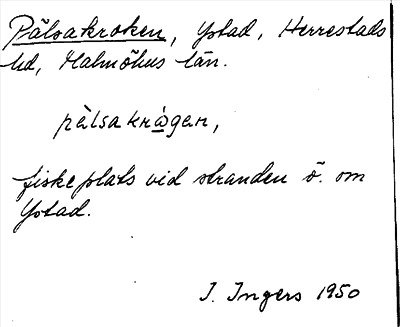 Pälsakroken, Ystad, Herrestads
hd, Malmöhus län.
pälsakrågen,
fiskeplats vid stranden ö. om
Ystad.
I. Ingers 1950